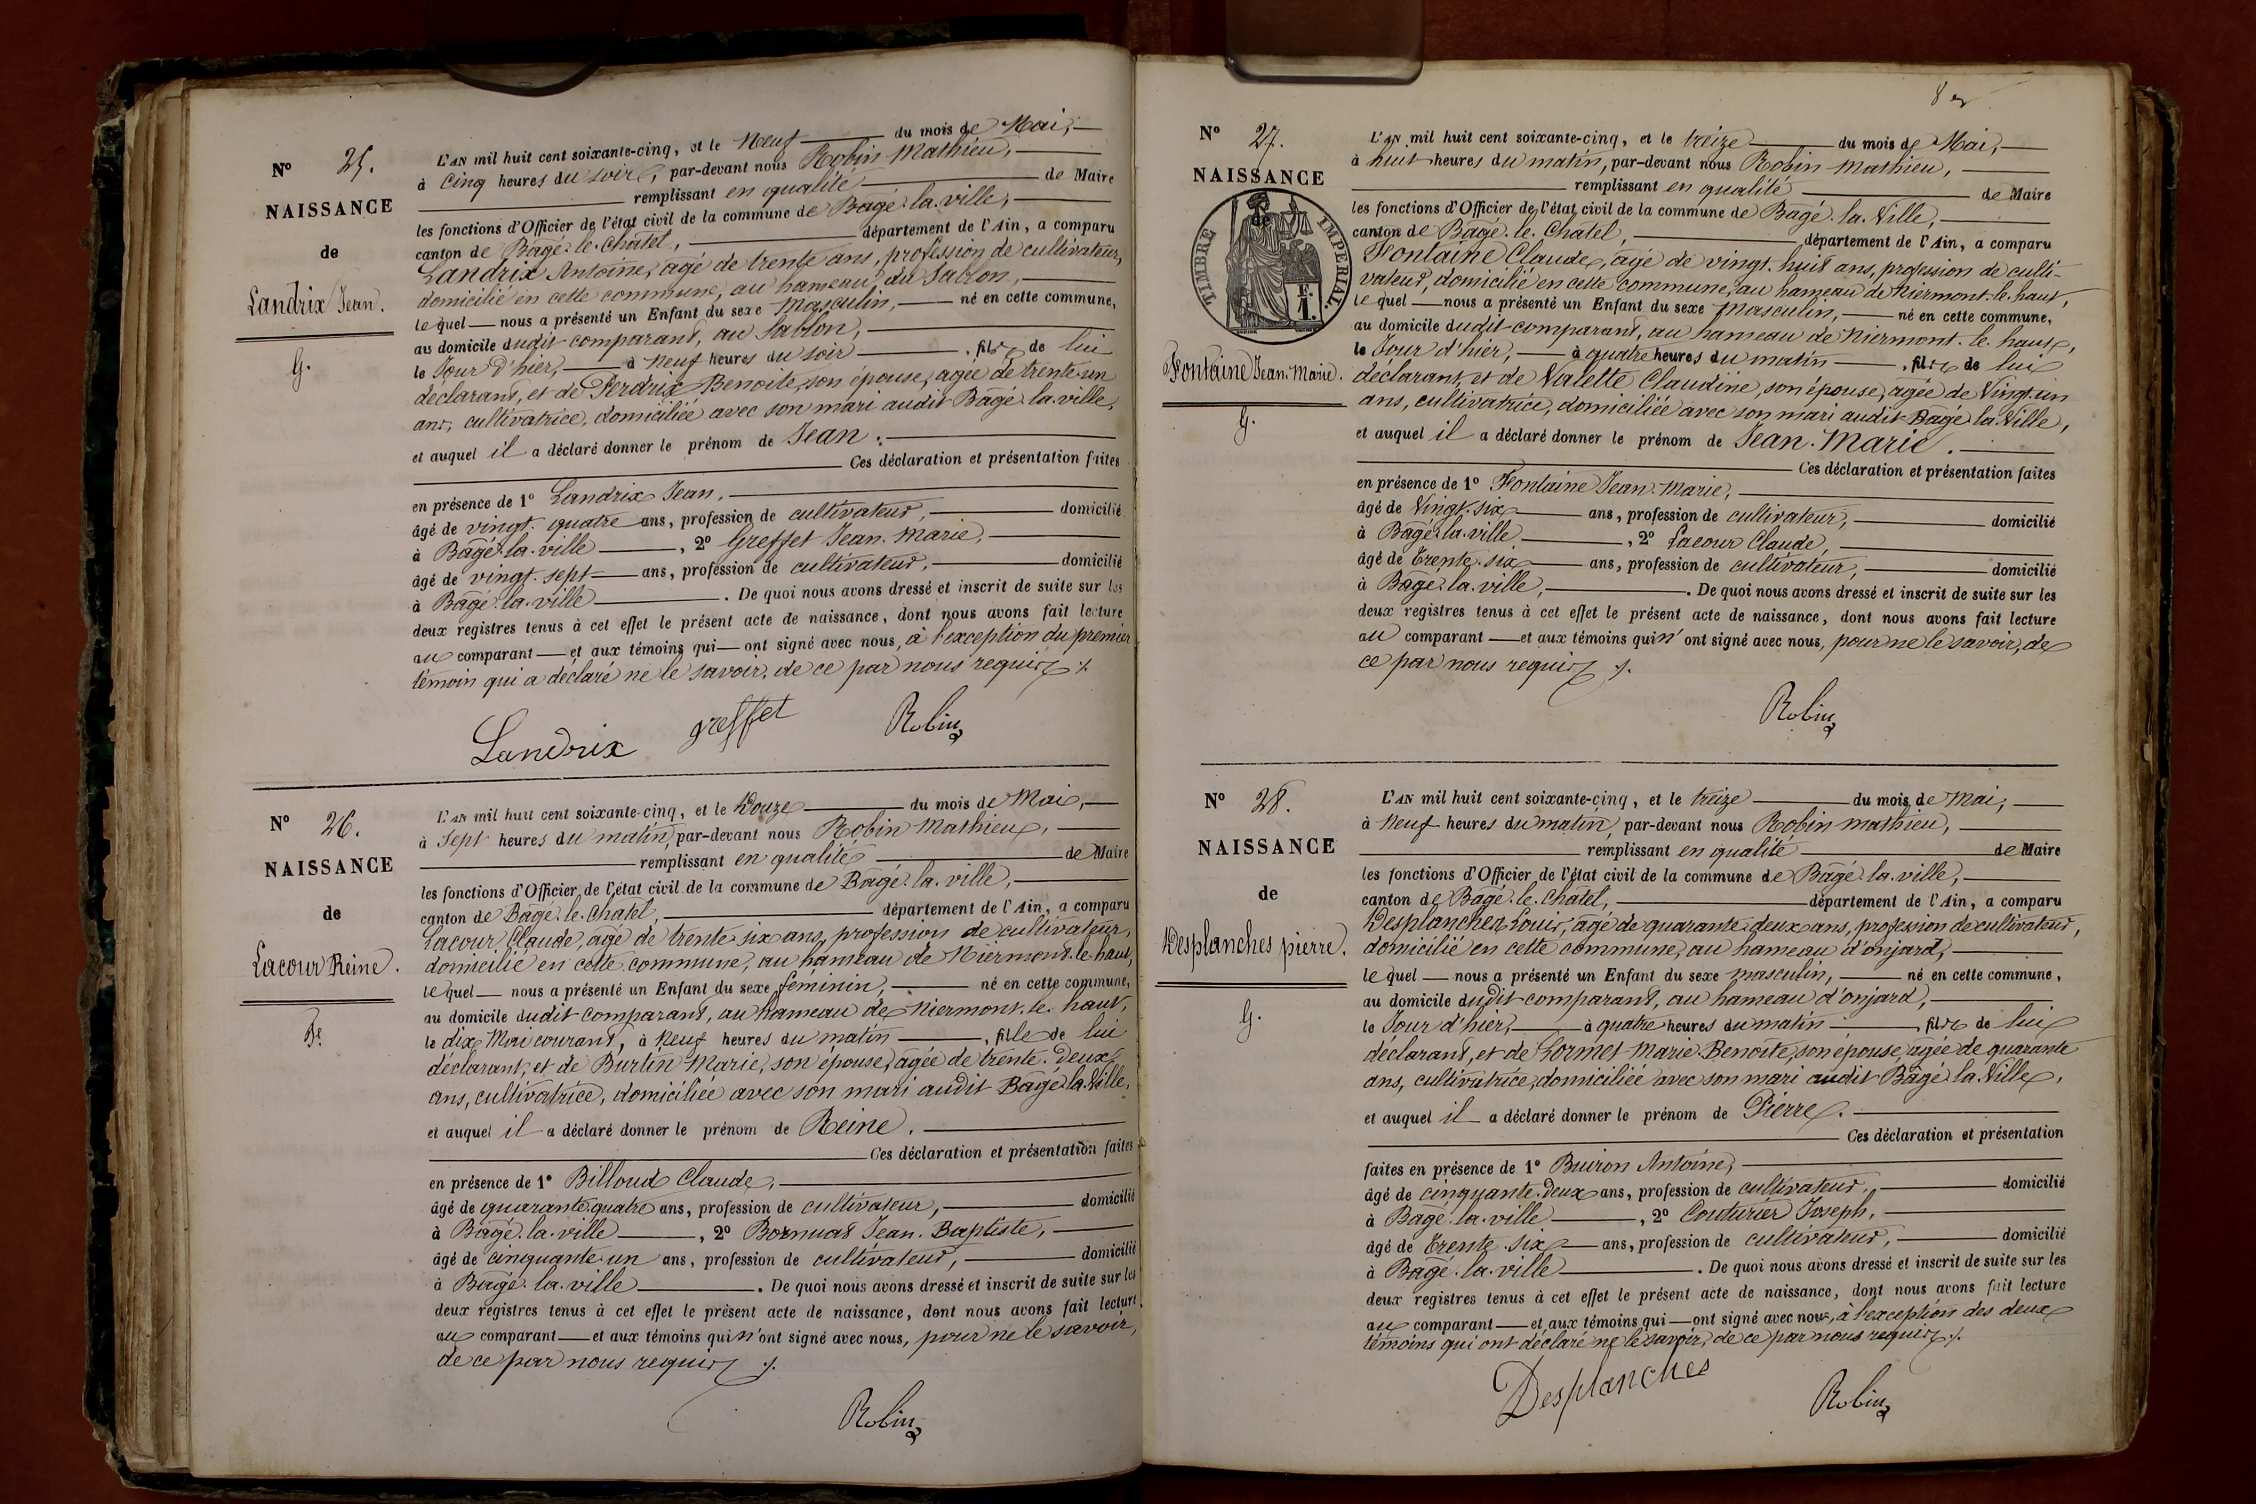 N° 25.
NAISSANCE
de
Landrix Jean.
G.
L'AN mil huit cent soixante-cinq, et le Neuf du mois de Mai,
à Cinq heures du soir, par-devant nous Robin Mathieu,
remplissant en qualité de Maire
les fonctions d'Officier de l'état civil de la commune de Bâgé-la-ville,
canton de Bâgé-le-Chatel, département de l'Ain, a comparu
Landrix Antoine, âgé de trente ans, profession de cultivateur,
domicilié en cette commune, au hameau du Sablon,
lequel nous a présenté un Enfant du sexe Masculin, né en cette commune,
au domicile dudit comparant, au Sablon,
le Jour d'hier, à Neuf heures du soir, fils de lui
déclarant, et de Perdrix Benoite, son épouse, agée de trente-un
ans, cultivatrice, domiciliée avec son mari audit Bâgé-la-ville,
et auquel il a déclaré donner le prénom de Jean.
Ces déclaration et présentation faites
en présence de 1° Landrix Jean,
âgé de vingt-quatre ans, profession de cultivateur, domicilié
à Bâgé-la-ville, 2° Greffet Jean-Marie,
âgé de vingt-sept ans, profession de cultivateur, domicilié
à Bâgé-la-ville. De quoi nous avons dressé et inscrit de suite sur les
deux registres tenus à cet effet le présent acte de naissance, dont nous avons fait lecture
au comparant et aux témoins qui ont signé avec nous, à l'exception du premier
témoin qui a déclaré ne le savoir, de ce par nous requis
Landrix greffet Robin
N° 26.
NAISSANCE
de
Lacour Reine.
L'AN mil huit cent soixante-cinq, et le Douze du mois de Mai,
à Sept heures du matin, par-devant nous Robin Mathieu,
remplissant en qualité de Maire
les fonctions d'Officier de l'état civil de la commune de Bâgé-la-ville,
canton de Bâgé-le-Chatel, département de l'Ain, a comparu
Lacour Claude, âgé de trente six ans, profession de cultivateur,
domicilié en cette commune, au hameau de Niermont-le-haut,
lequel nous a présenté un Enfant du sexe féminin, né en cette commune,
au domicile dudit comparant, au hameau de Niermont-le-haut,
le dix Mai courant, à Neuf heures du matin, fille de lui
déclarant, et de Burtin Marie, son épouse, agée de trente-deux
ans, cultivatrice, domiciliée avec son mari audit Bâgé-la-Ville,
et auquel il a déclaré donner le prénom de Reine.
Ces déclaration et présentation faites
en présence de 1° Billoud Claude,
âgé de quarante-quatre ans, profession de cultivateur, domicilié
à Bâgé-la-ville, 2° Bornuat Jean-Baptiste,
âgé de cinquante-un ans, profession de cultivateur, domicilié
à Bâgé-la-ville. De quoi nous avons dressé et inscrit de suite sur les
deux registres tenus à cet effet le présent acte de naissance, dont nous avons fait lecture
au comparant et aux témoins qui n'ont signé avec nous, pour ne le savoir,
de ce par nous requis
Robin
8
N° 27.
NAISSANCE
de
TIMBRE IMPERIAL.
F.
1.
Fontaine Jean-Marie.
G.
L'AN mil huit cent soixante-cinq, et le treize du mois de Mai,
à huit heures du matin, par-devant nous Robin Mathieu,
remplissant en qualité de Maire
les fonctions d'Officier de l'état civil de la commune de Bâgé-la-Ville,
canton de Bâgé-le-Chatel, département de l'Ain, a comparu
Fontaine Claude, âgé de vingt-huit ans, profession de culti-
vateur, domicilié en cette commune, au hameau de Niermont-le-haut,
lequel nous a présenté un Enfant du sexe Masculin, né en cette commune,
au domicile dudit comparant, au hameau de Niermont-le-haut,
le Jour d'hier, à quatre heures du matin, fils de lui
déclarant, et de Valette Claudine, son épouse, agée de Vingt-un
ans, cultivatrice, domiciliée avec son mari audit Bâgé-la-Ville,
et auquel il a déclaré donner le prénom de Jean-Marie.
Ces déclaration et présentation faites
en présence de 1° Fontaine Jean-Marie,
âgé de Vingt-six ans, profession de cultivateur, domicilié
à Bâgé-la-ville, 2° Lacour Claude,
âgé de Trente-six ans, profession de cultivateur, domicilié
à Bâgé-la-ville,. De quoi nous avons dressé et inscrit de suite sur les
deux registres tenus à cet effet le présent acte de naissance, dont nous avons fait lecture
au comparant et aux témoins qui n'ont signé avec nous, pour ne le savoir, de
ce par nous requis
Robin
N° 28.
NAISSANCE
de
Desplanches pierre.
G.
L'AN mil huit cent soixante-cinq, et le treize du mois de Mai,
à Neuf heures du matin, par-devant nous Robin Mathieu,
remplissant en qualité de Maire
les fonctions d'Officier de l'état civil de la commune de Bâgé-la-ville,
canton de Bâgé-le-Chatel, département de l'Ain, a comparu
Desplanches Louis, âgé de quarante-deux ans, profession de cultivateur,
domicilié en cette commune, au hameau d'onjard,
lequel nous a présenté un Enfant du sexe masculin, né en cette commune,
au domicile dudit comparant, au hameau d'onjard,
le Jour d'hier, à quatre heures du matin, fils de lui
déclarant, et de Lormet Marie-Benoite, son épouse, âgée de quarante
ans, cultivatrice, domiciliée avec son mari audit Bâgé-la-Ville,
et auquel il a déclaré donner le prénom de Pierre.
Ces déclaration et présentation
faites en présence de 1° Buiron Antoine,
âgé de cinquante-deux ans, profession de cultivateur, domicilié
à Bâgé-la-ville, 2° Couturier Joseph,
âgé de Trente-six ans, profession de cultivateur, domicilié
à Bâgé-la-ville. De quoi nous avons dressé et inscrit de suite sur les
deux registres tenus à cet effet le présent acte de naissance, dont nous avons fait lecture
au comparant et aux témoins qui ont signé avec nous, à l'exception des deux
témoins qui ont déclaré ne le savoir, de ce par nous requis
Desplanches Robin